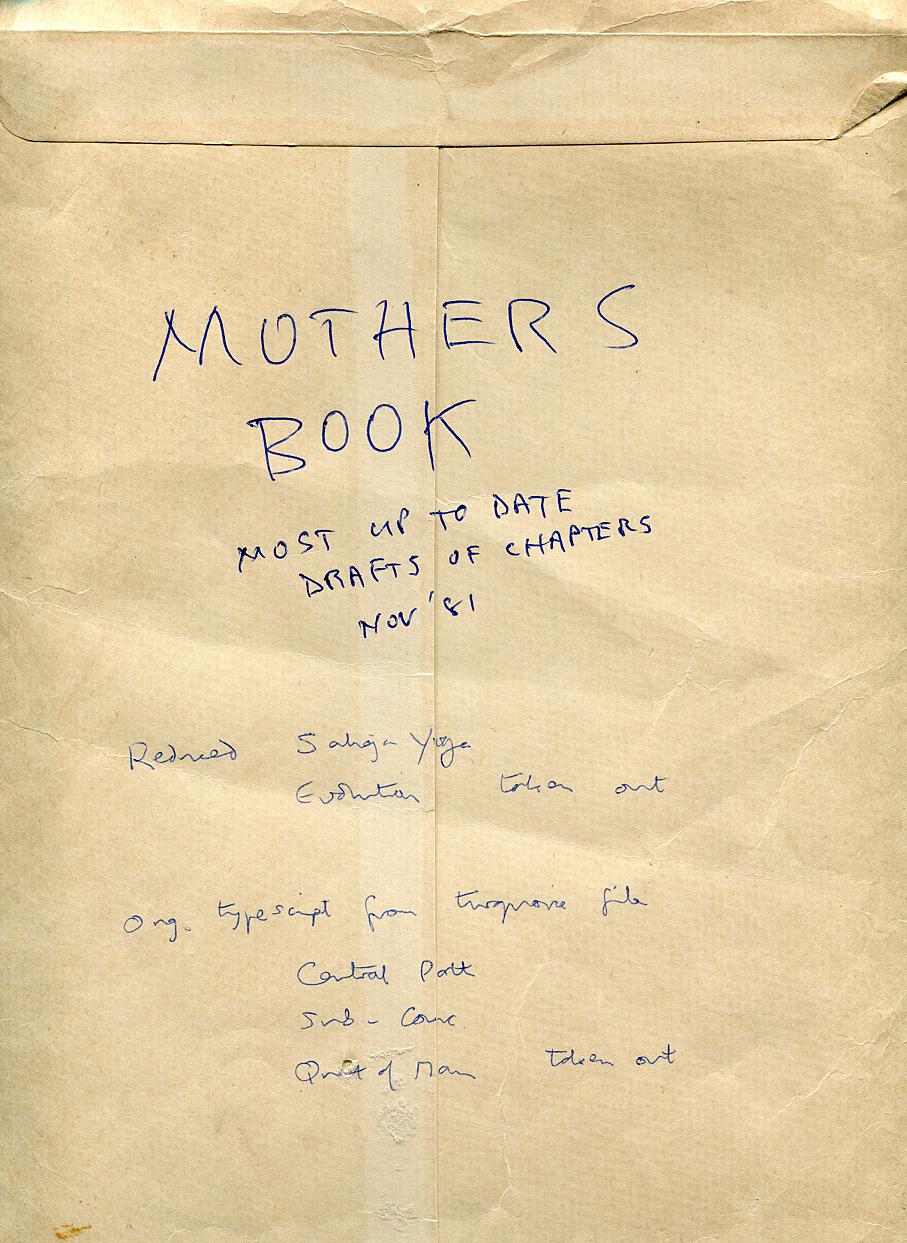 MOTHERS
BOOK
MOST UP TO DATE
DRAFTS OF CHAPTERS
NOV '81
Reduced Sahaja Yoga
Evolution taken out
Orig. typescript from turquoise file
Central Path
Sub - Consc.
Quest of Man taken out